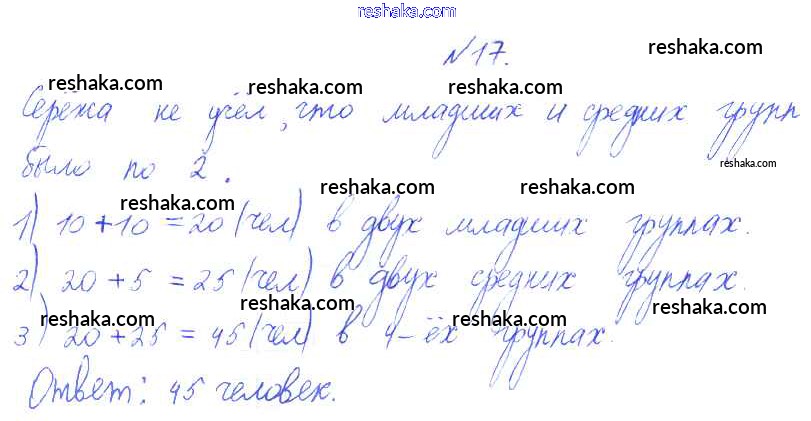 reshaka.com
№17. reshaka.com
reshaka.com reshaka.com reshaka.com
Серёжа не учёл, что младших и средних групп
было по 2. reshaka.com
reshaka.com reshaka.com reshaka.com
1) 10+10=20 (чел) в двух младших группах.
reshaka.com reshaka.com
2) 20+5=25 (чел) в двух средних группах.
reshaka.com reshaka.com reshaka.com reshaka.com
3) 20+25=45 (чел) в 4-ёх группах.
reshaka.com reshaka.com
Ответ: 45 человек.
reshaka.com reshaka.com reshaka.com